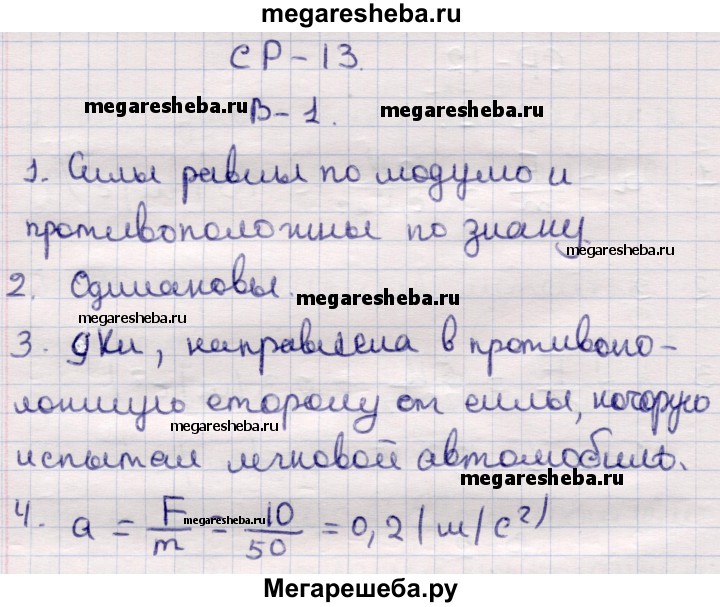 megaresheba.ru
СР-13.
megaresheba.ru В-1. megaresheba.ru
1. Силы равны по модулю и
противоположны по знаку megaresheba.ru
2. Одинаковы. megaresheba.ru
megaresheba.ru
3. 9 Кн, направлена в противопо-
megaresheba.ru
ложную сторону от силы, которую
megaresheba.ru
испытал легковой автомобиль.
megaresheba.ru
4. a = F/m = 10/50 = 0,2 (м/с²)
megaresheba.ru
Мегарешеба.ру